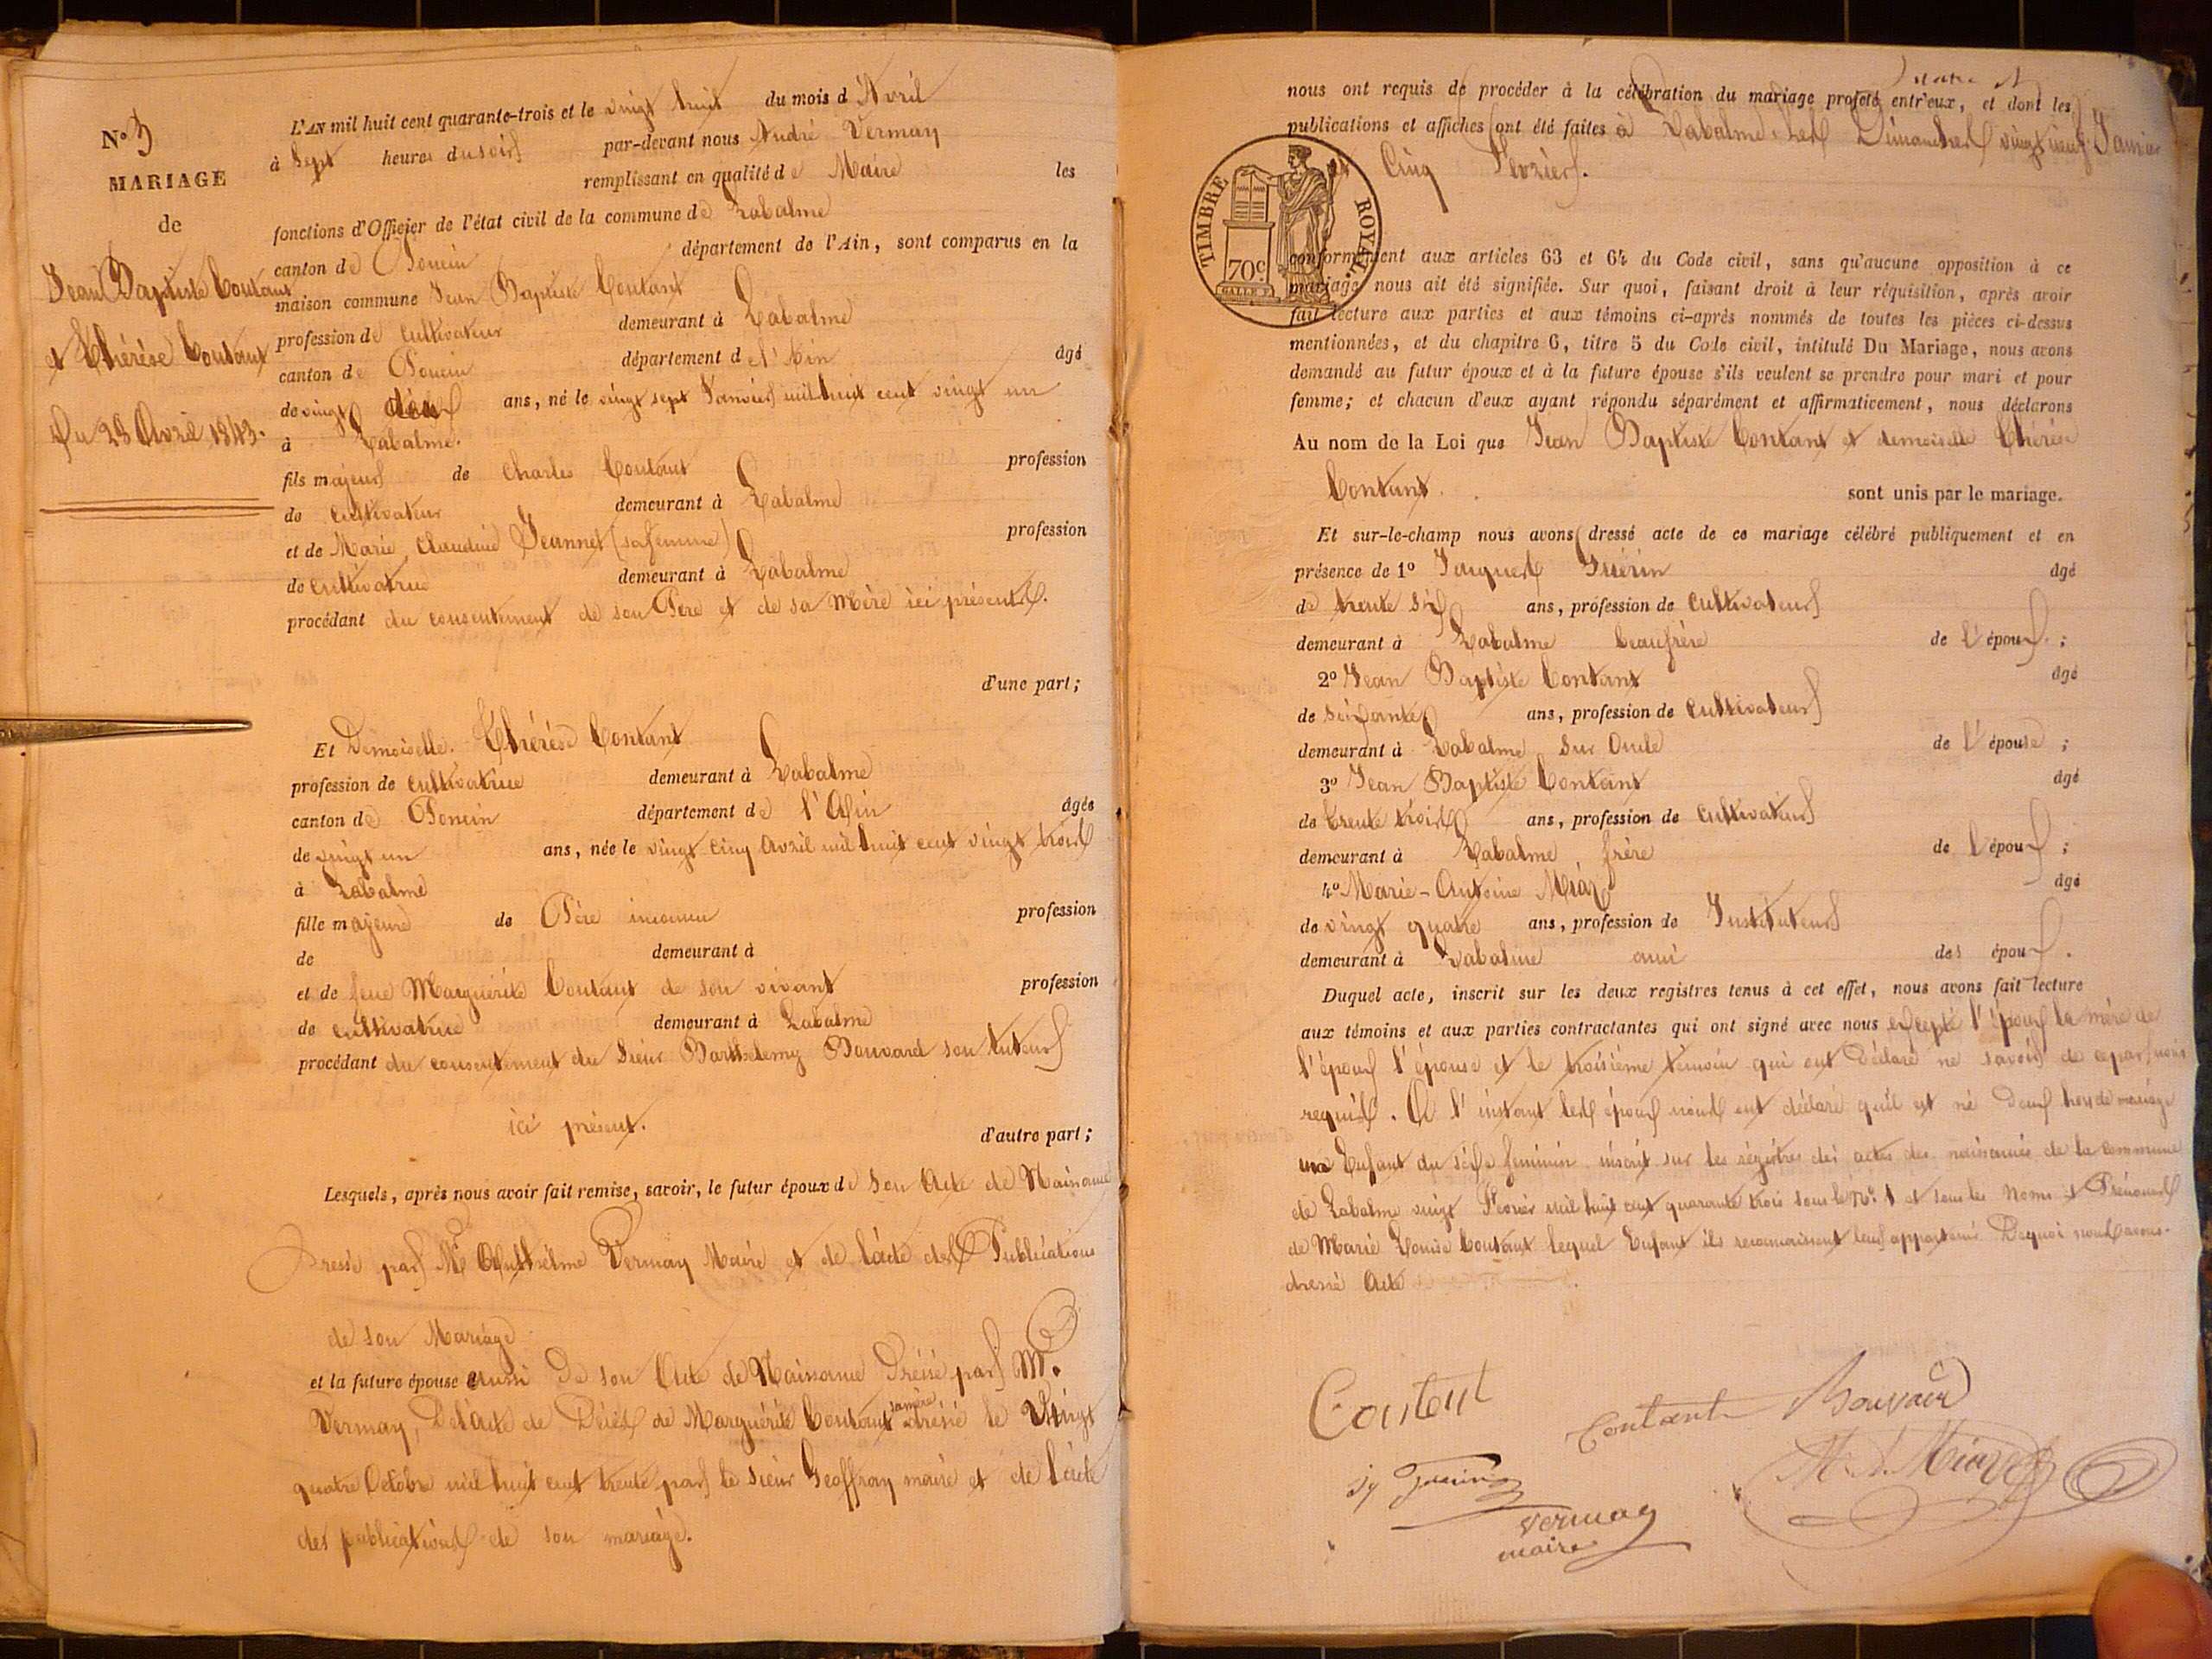 N.º 3
MARIAGE
de
Jean Baptiste Contant
et Thérèse Contant
Du 28 Avril 1843.
L'AN mil huit cent quarante-trois et le vingt huit du mois d'Avril
à Sept heures du soir par-devant nous André Vermay
remplissant en qualité de Maire les
fonctions d'Officier de l'état civil de la commune de Labalme
canton de Poncin département de l'Ain, sont comparus en la
maison commune Jean Baptiste Contant
profession de Cultivateur demeurant à Labalme
canton de Poncin département de l'Ain âgé
de vingt deux ans, né le vingt sept Janvier mil huit cent vingt un
à Labalme.
fils majeur de Charles Contant profession
de Cultivateur demeurant à Labalme
et de Marie, Claudine Jeannet (sa femme) profession
de cultivatrice demeurant à Labalme
procédant du consentement de son Père et de sa Mère ici présents.
d'une part;
Et Demoiselle. Thérèse Contant
profession de cultivatrice demeurant à Labalme
canton de Poncin département de l'Ain âgée
de vingt un ans, née le vingt cinq Avril mil huit cent vingt trois
à Labalme
fille majeure de Père inconnu profession
de demeurant à
et de feue Marguérite Contant de son vivant profession
de cultivatrice demeurant à Labalme
procédant du consentement du Sieur Barthelemy Bouvard son tuteur
ici présent.
d'autre part;
Lesquels, après nous avoir fait remise, savoir, le futur époux de Son Acte de Naissance
Dressé par Mr Anthelme Vermay Maire et de l'acte des Publications
de son Mariage
et la future épouse aussi De son Acte de Naissance Dréssé par Mr.
Vermay, De l'Acte de Décès de Marguérite Contant sa mère dréssé le Vingt
quatre Octobre mil huit cent trente par le sieur Geoffray maire et de l'acte
des publications de son mariage.
nous ont requis de procéder à la célébration du mariage projeté entr'eux, et dont les
publications et affiches ont été faites à Labalme les Dimanches vingt neuf Janvier
et Cinq Février.
TIMBRE ROYAL.
70c
conformément aux articles 63 et 64 du Code civil, sans qu'aucune opposition à ce
mariage nous ait été signifiée. Sur quoi, faisant droit à leur réquisition, après avoir
fait lecture aux parties et aux témoins ci-après nommés de toutes les pièces ci-dessus
mentionnées, et du chapitre 6, titre 5 du Code civil, intitulé Du Mariage, nous avons
demandé au futur époux et à la future épouse s'ils veulent se prendre pour mari et pour
femme; et chacun d'eux ayant répondu séparément et affirmativement, nous déclarons
Au nom de la Loi que Jean Baptiste Contant et demoiselle Thérèse
Contant. sont unis par le mariage.
Et sur-le-champ nous avons dressé acte de ce mariage célébré publiquement et en
présence de 1º Jacques Guérin âgé
de trente six ans, profession de Cultivateur
demeurant à Labalme beaufrère de l'époux;
2º Jean Baptiste Contant âgé
de soixante ans, profession de Cultivateur
demeurant à Labalme Sur Oncle de l'épouse;
3º Jean Baptiste Contant âgé
de trente trois ans, profession de Cultivateur
demeurant à Labalme, frère de l'époux;
4º Marie-Antoine âgé
de vingt quatre ans, profession de Instituteur
demeurant à Labalme ami des époux.
Duquel acte, inscrit sur les deux registres tenus à cet effet, nous avons fait lecture
aux témoins et aux parties contractantes qui ont signé avec nous excepté l'époux la mère de
l'époux l'épouse et le troisième témoin qui ont Déclaré ne savoir de ce par nous
requis. A l'instant les époux nous ont déclaré quil est né Deux hors de mariage
un Enfant du séxe feminin inscrit sur les régistres des actes des naissances de la commune
de Labalme vingt Février mil huit cent quarante trois sous le No. 1 et sous les Noms et Prénoms
de Marie Louise Contant lequel Enfant ils reconnaissent leur appartenir Dequoi nous avons
dressé Acte
Content
Contant Bouvard
Jq Guerin
Vermay
maire